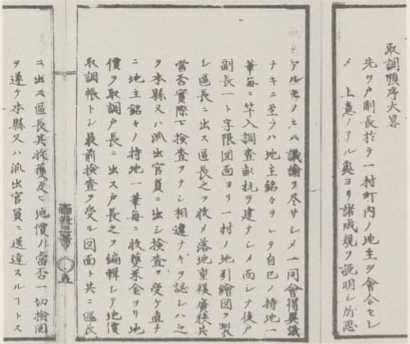 取調順序大畧
先ツ戸副長於テ一村町内ノ地主ヲ會合セシ
メ 上意ノアル奥ヨリ諸成規ヲ説明シ
アルモノハ議論ヲ尽サシメ一同會得異議
ナキニ至ラハ地主銘々ヲシテ自己ノ持地一
筆毎ニ竿入調査畝杭ヲ建テシメ而シテ後戸
副長一ト字限図面ヨリ一村ノ地引繪図ヲ製
シ區長ニ出ス區長之ヲ收メ落地重複廣狭共
當否實際ヲ検査シ相違ナキヲ認レハ之
ヲ本縣又ハ派出官員ニ出シ検査ヲ受ケ直チ
ニ地主銘々ノ持地一筆毎ニ收穫米金ヨリ地
價ヲ取調戸長ニ出ス戸長之ヲ編輯シテ地價
取調帳トシ最前検査ヲ受ル図面ト共ニ區長
ニ出ス區長其收穫及ヒ地價ノ當否一切検閲
ヲ遂ケ本縣又ハ派出官員ニ送達スルトス